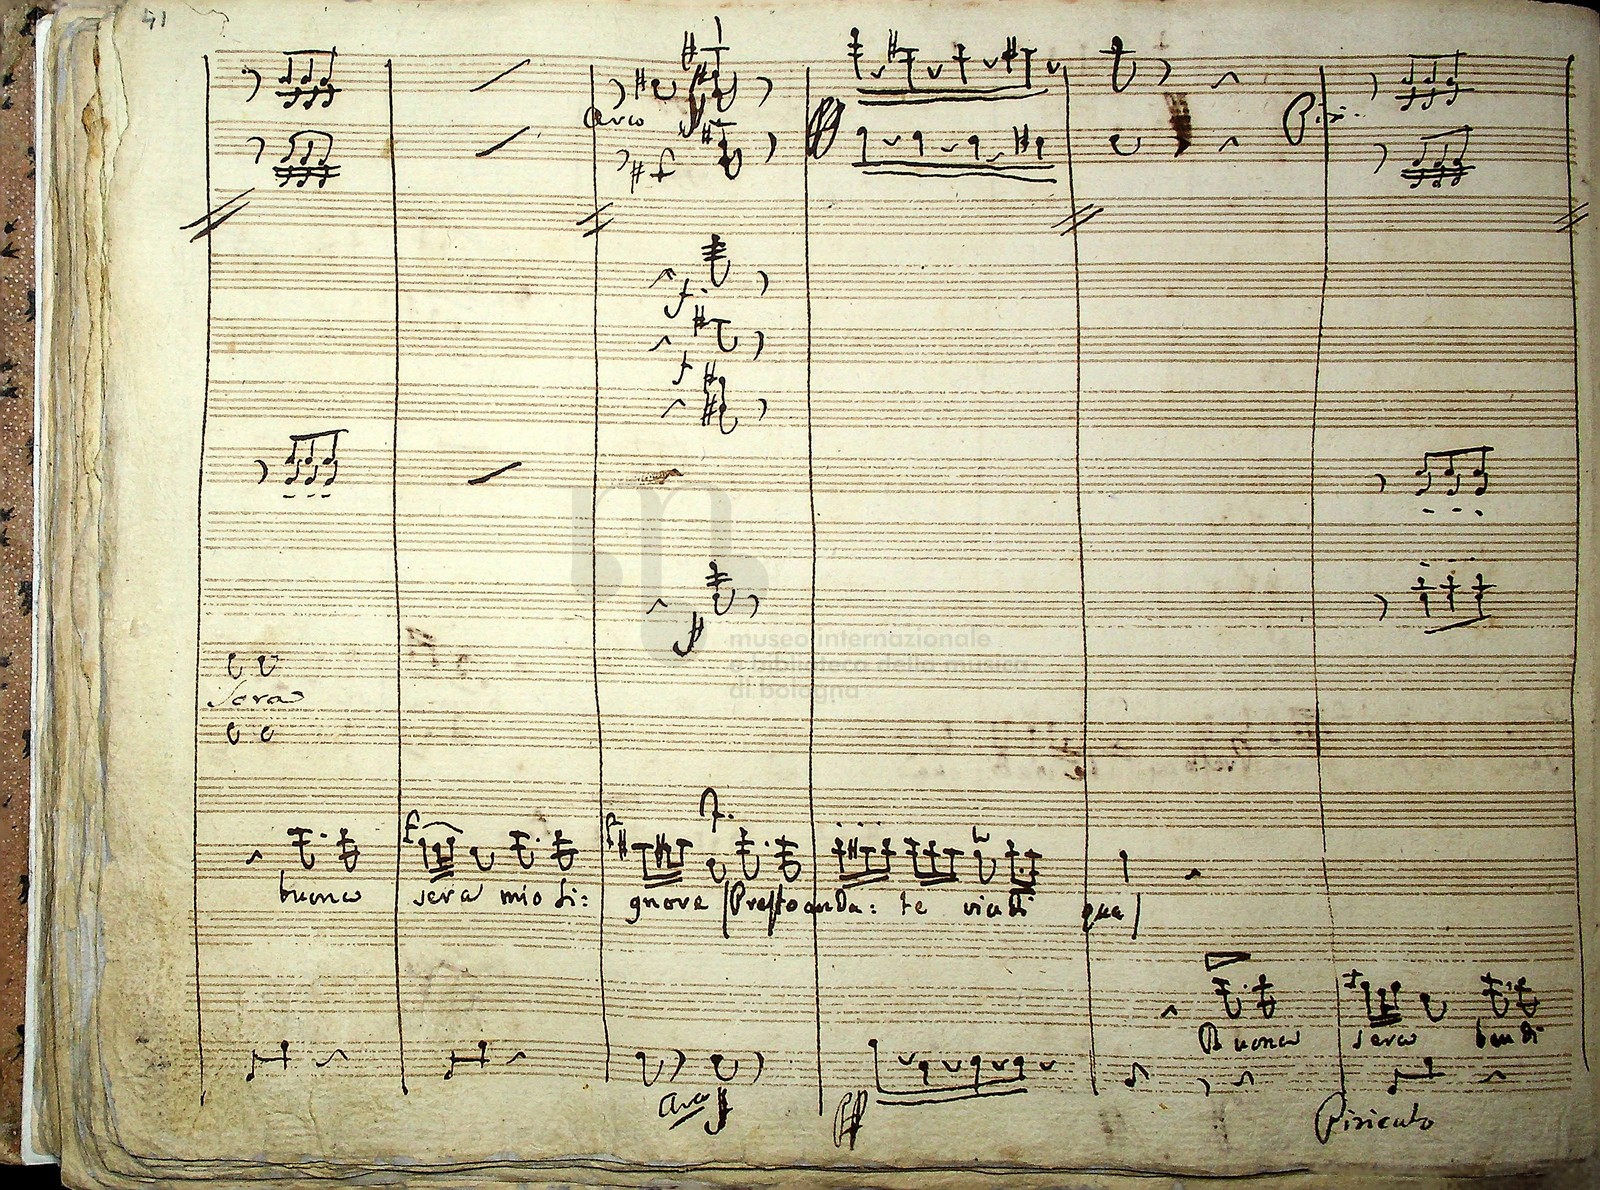 41
Arco
Piz.
museo internazionale
e biblioteca della musica
di bologna
Sera
buona sera mio si: gnore Presto anda: te via di qua
Buona sera ben di
Arco
Pizicato